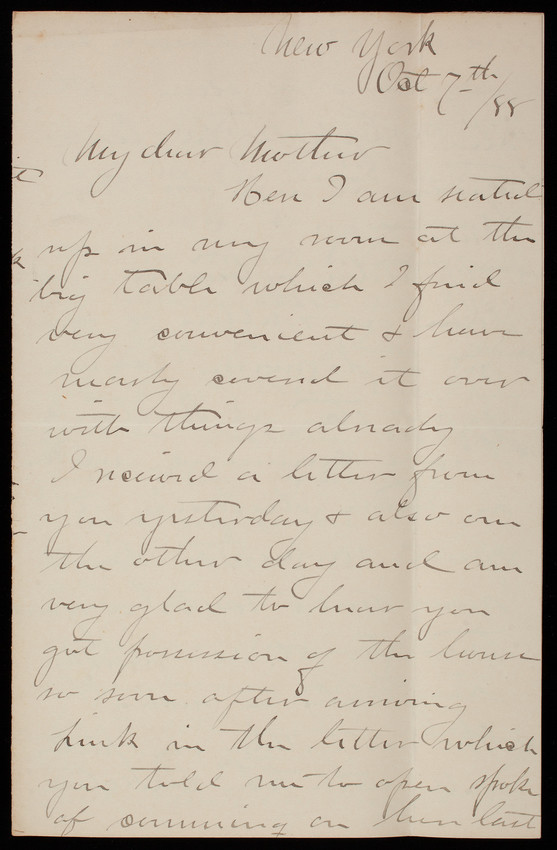 New York
Oct 7th/88
My dear Mother
Here I am seated
up in my room at the
big table which I find
very convenient & have
nearly covered it over
with things already
I received a letter from
you yesterday & also one
the other day and am
very glad to hear you
got possession of the house
so soon after arriving
in the letter which
you told me to open spoke
of comming on here last